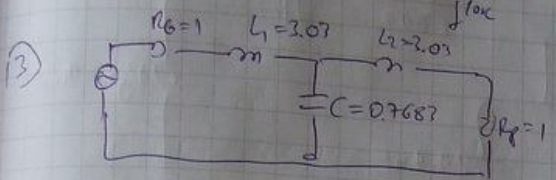 RG=1 L1=3.03 L2=3.03
13)
C=0.7682
Rp=1